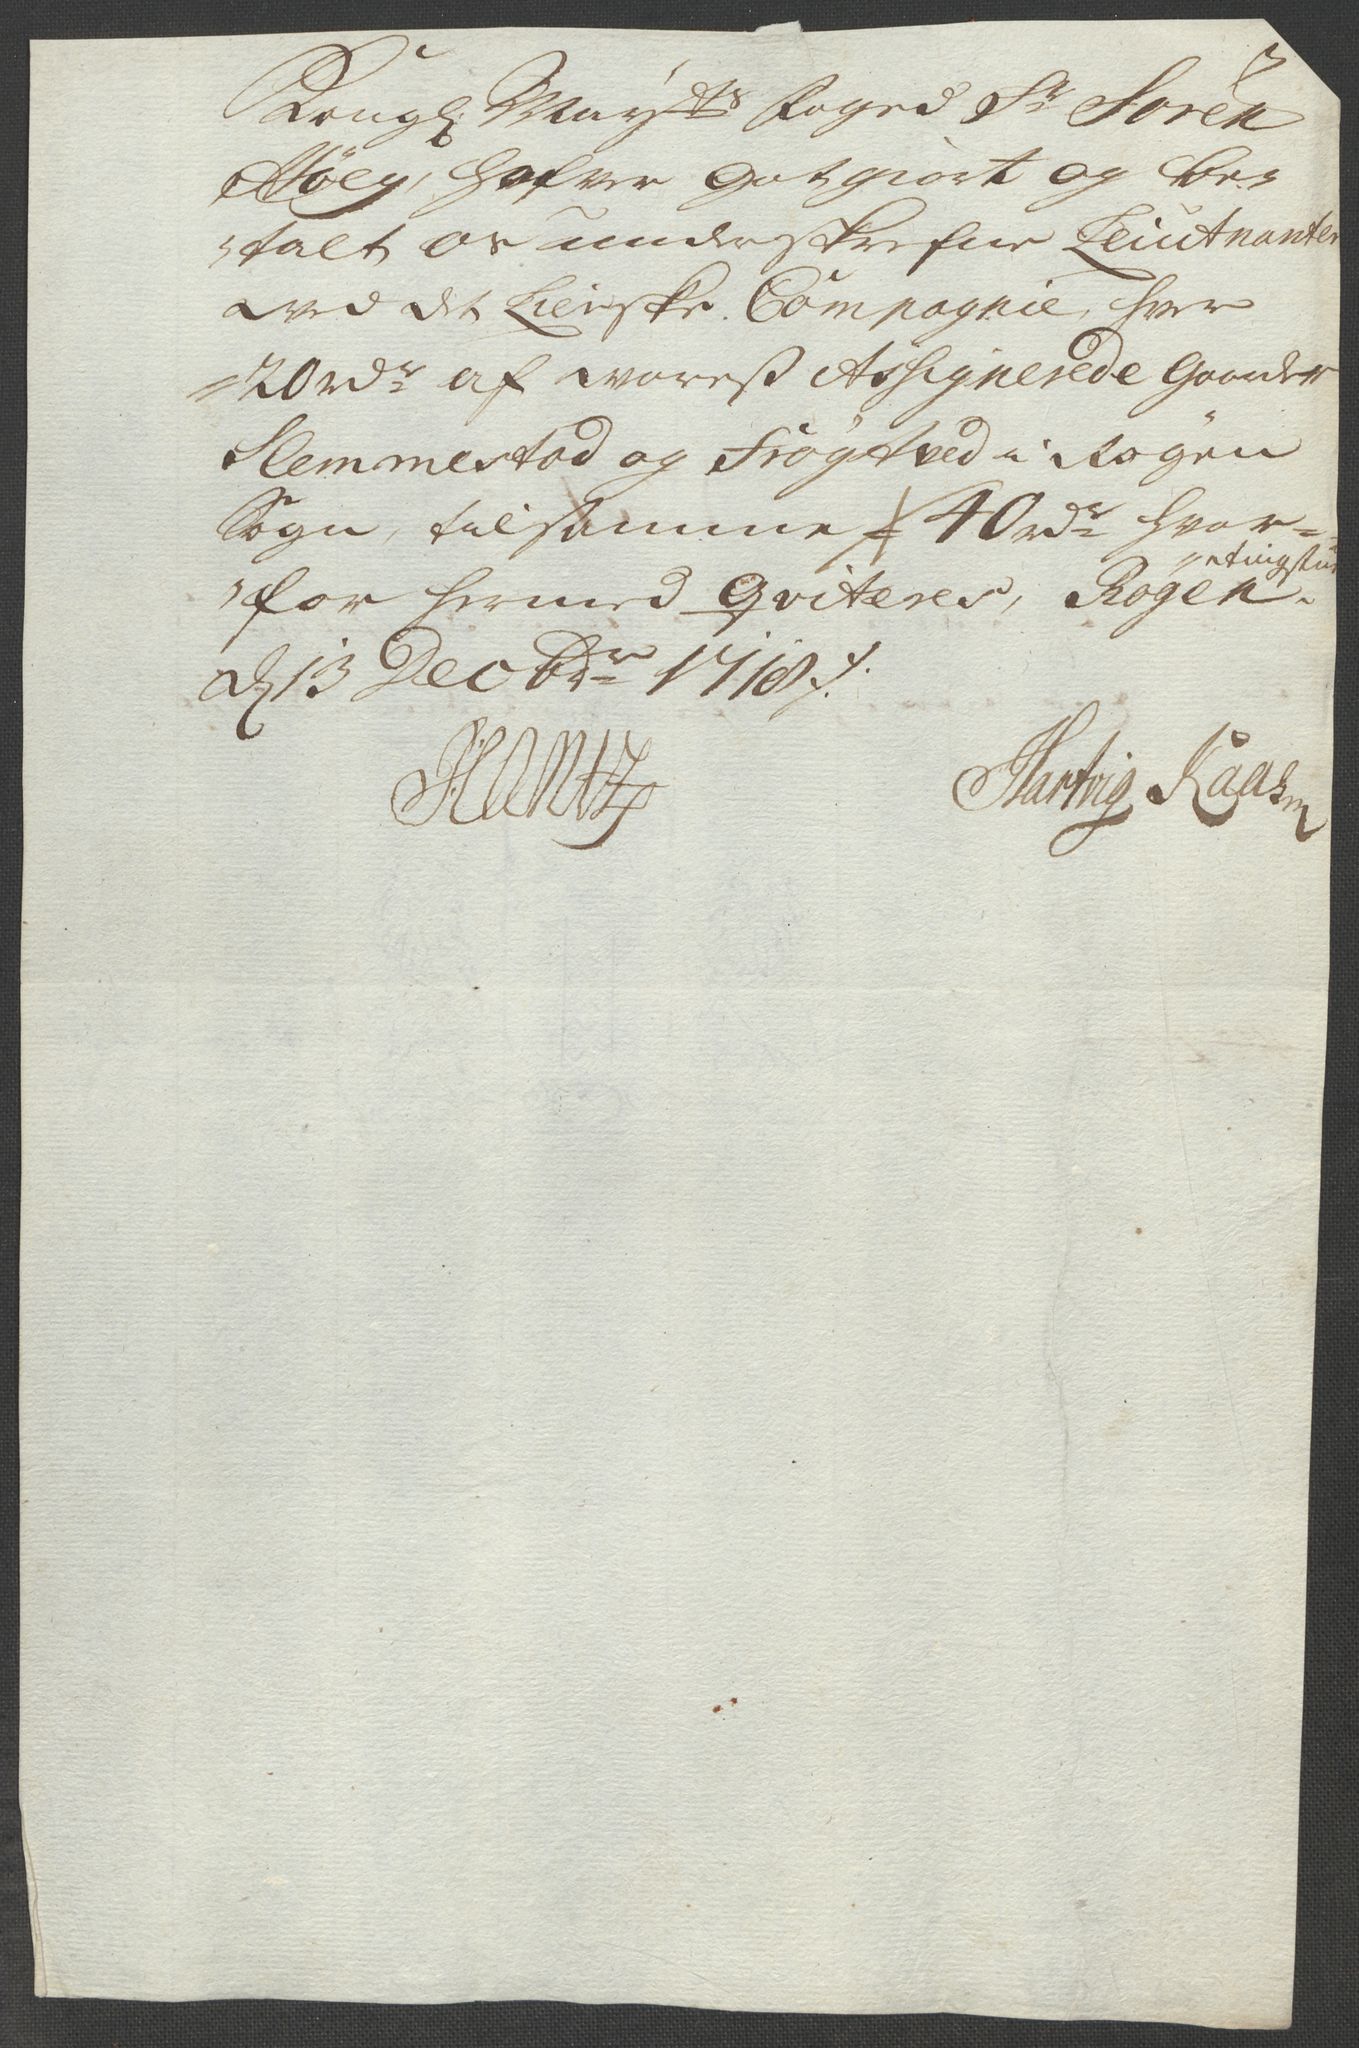 Kongl: Mayts foged Sr Sören
Höeg, hafver godtgiort og be-
talt os underskrefne Leiutnanter
ved det Lierske Compagnie, hver
20 rdr af voreß Assignerede Gaarder
Slemmestad og Frögtved i Rögen
Sogn, tilsamme 40 rdr hvor-
for hermed Qviteres, Rögen
d 13 Decbr 1718
Hartvig Kaas